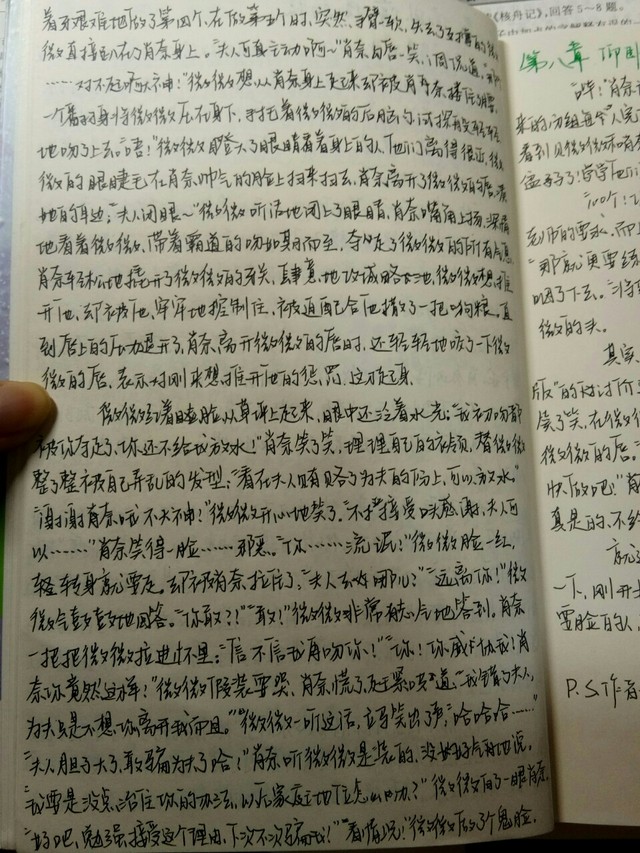 着牙艰难地做了第四个,在做第五个时,突然,手臂一软,失去了支撑的微
微直接趴在了肖奈身上。"夫人可真主动啊~"肖奈勾唇一笑,调侃道。
"……对不起啊大神!"微微想从肖奈身上起来却被肖奈搂住了腰,
一个翻身将微微压在身下,手托着微微的后脑勺,试探般轻轻
地吻了上去。"唔!"微微瞪大了眼睛看着身上的人,他们离得很近,微
微的眼睫毛在肖奈帅气的脸上扫来扫去,肖奈离开了微微的唇,凑
她的耳边:"夫人闭眼~"微微听话地闭上了眼睛,肖奈嘴角上扬,深情
地看着微微,带着霸道的吻如期而至,夺走了微微的所有气息,
肖奈轻松地撬开了微微的牙关,肆意地攻城略池,微微想推
开他,却被他牢牢地控制住,被迫配合他撒了一把狗粮。直
到唇上的压力退开了,肖奈离开微微的唇时,还轻轻地咬了一下微
微的唇,表示对刚来想推开他的惩罚,这才起身。
微微红着脸从草坪上起来,眼中还泛着水光:"我初吻都
被你夺走了,你还不给我放水!"肖奈笑了笑,理理自己的衣领,替微微
整了整被自己弄乱的发型:"看在夫人贿赂了为夫的份上,可以放水。"
"谢谢肖奈哦不大神!"微微开心地笑了。"不接受口头感谢,夫人可
以……"肖奈笑得一脸……邪恶。"你……流氓!"微微脸一红,
轻转身就要走。却被肖奈拉住了:"夫人去哪儿?""远离你!"微
微气鼓鼓地回答。"你敢?!""敢!"微微非常有志气地答到。肖奈
一把把微微拉进怀里:"信不信我再吻你!""你!你威胁我!肖
奈你竟然这样!"微微假装要哭,肖奈慌了,赶紧哄道:"我错了夫人,
为夫只是不想你离开我而且。""微微一听这话,立马笑出了声:"哈哈哈……"
"夫人胆子大了,敢骗为夫了哈!"肖奈听微微是装的,没好气的地说。
"我要是没点治住你的办法,以后家庭地位怎么办?"微微白了一眼肖奈。
"好吧,勉强接受这个理由,下次不许骗我!""看情况!"微微做了个鬼脸,
《核舟记》,回答5~8题。
第八章
"哗!"肖奈
来的
看到见微微和肖奈
"那就更要练
咽了下去。"
微微的头。
其实,
版"的对讨价
笑了笑,在微微
微微的唇。
快做吧!"肖
真是的,不给
就这
一下,刚开
要脸的人,
P.S.作者